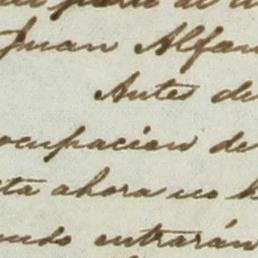 Juan Alfan
Antes de
ocupacion de
ta ahora no h
entrarán